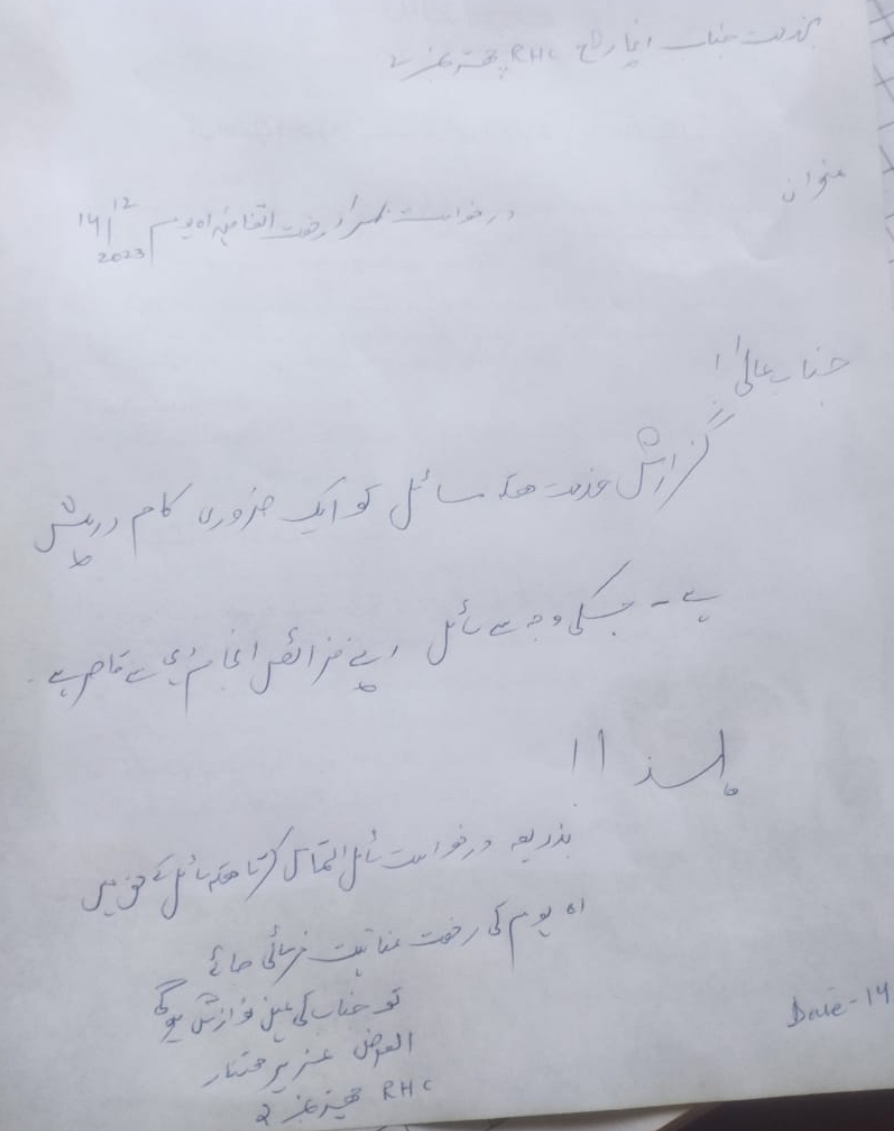 بخدمت جناب انچارج RHC
عنوان
درخواست بمراد رخصت اتفاقیہ ایوم 14/12 2023
جناب عالی!
گزارش خدمت ھیکہ سائل کو ایک ضروری کام درپیش
ہے - جسکی وجہ سے سائل اپنے فرائض انجام دہی سے قاصر ہے
لہذا !!
بذریعہ درخواست سائل التماس کرتا ھیکہ سائل کے حق میں
01 یوم کی رخصت عنائیت فرمائی جائے
تو جناب کی عین نوازش ہوگی
العرض عزیر مختار
RHC
Date - 14